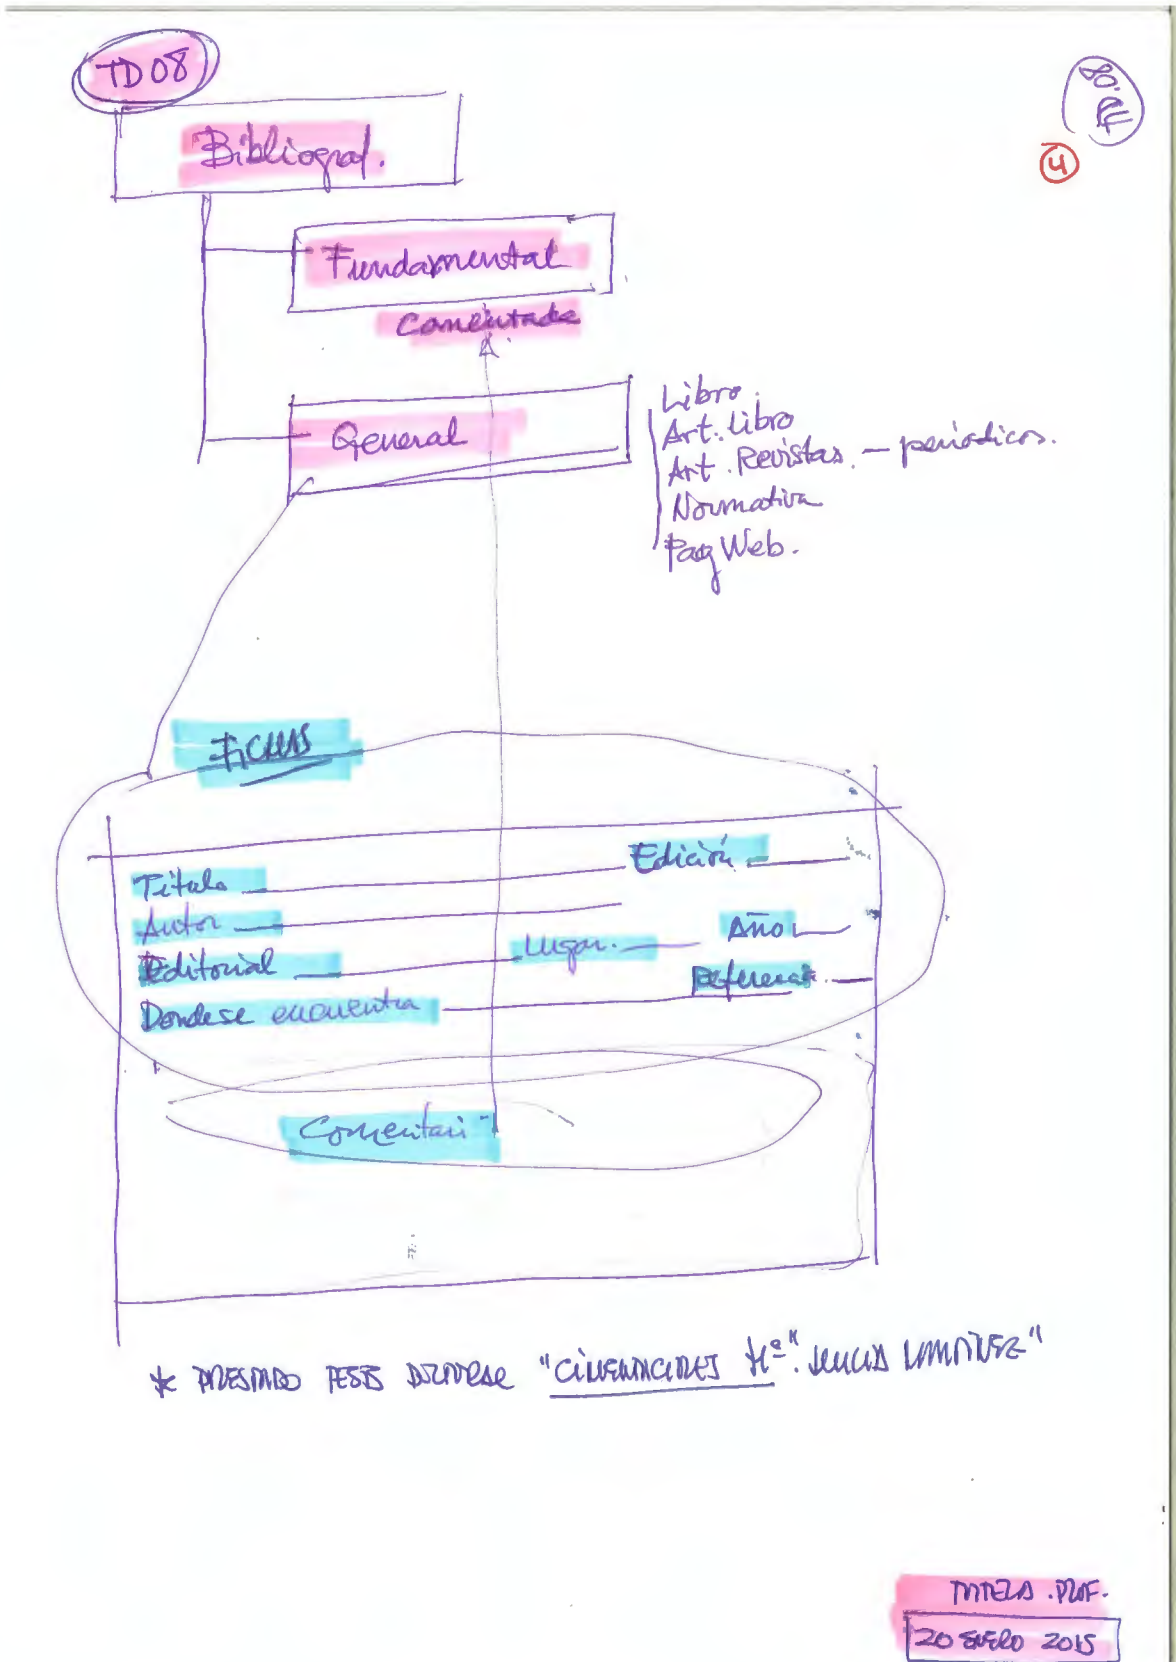 TD 08
TD.08
4
Bibliograf.
Fundamental
Comentada
General
Libro.
Art. libro
Art. Revistas. – periódicos.
Normativa
Pag Web.
FICHAS
Título Edición
Autor Año
Editorial Lugar.
Referencia
Donde se encuentra
Comentari
* PRESTADO TESIS "CIMENTACIONES Hª"
TUTELA . PROF.
20 ENERO 2015